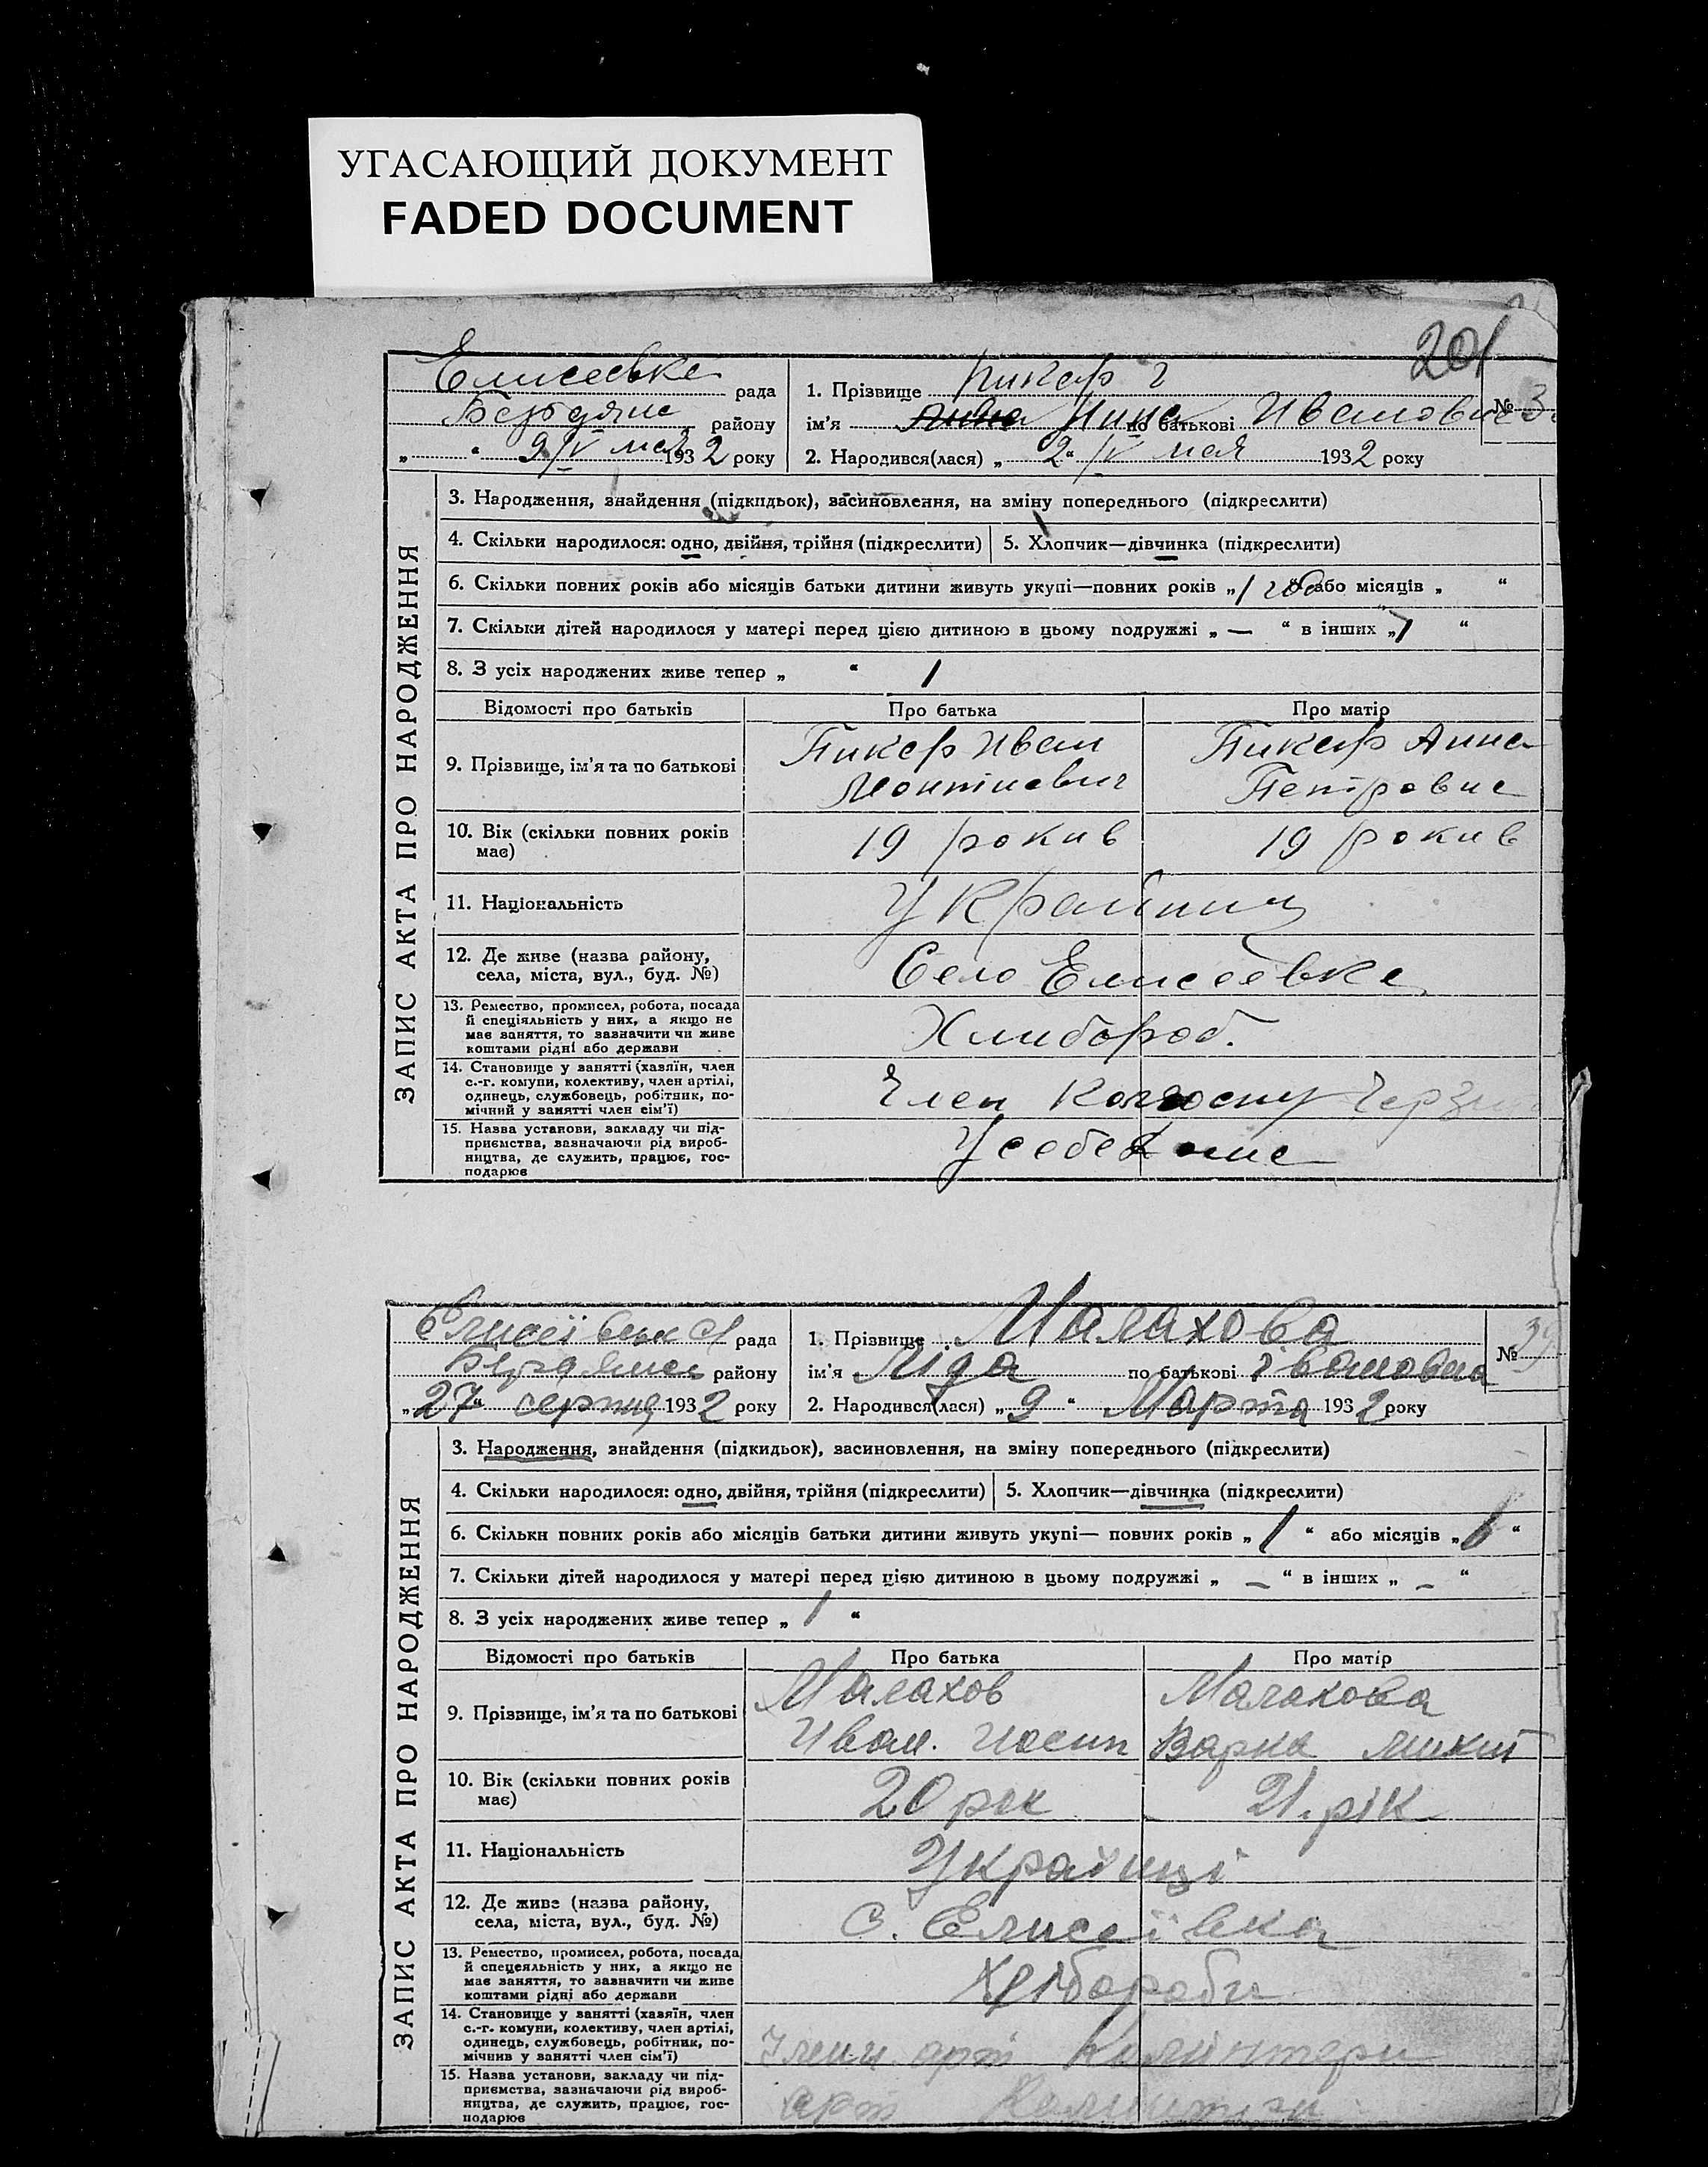 УГАСАЮЩИЙ ДОКУМЕНТ
FADED DOCUMENT
201
Елисеевка рада
району
„ “ 2/V мая 1932 року
1. Прізвище Пикар
№ 3
ім'я Анна Нина по батькові Ивановна
2. Народився(лася) „ 2 “ /V мая 1932 року
ЗАПИС АКТА ПРО НАРОДЖЕННЯ
3. Народження, знайдення (підкидьок), засиновлення, на зміну попереднього (підкреслити)
4. Скільки народилося: одно, двійня, трійня (підкреслити) 5. Хлопчик—дівчинка (підкреслити)
6. Скільки повних років або місяців батьки дитини живуть укупі—повних років „ 1 год “ або місяців „ “
7. Скільки дітей народилося у матері перед цією дитиною в цьому подружжі „ — “ в інших „ 1 “
8. З усіх народжених живе тепер „ “ 1
Відомості про батьків Про батька Про матір
9. Прізвище, ім'я та по батькові Пикар Иван Пикар Анна
Петровна
10. Вік (скільки повних років має) 19 рокив 19 рокив
11. Національність
12. Де живе (назва району, села, міста, вул., буд. №) Село Елисеевка
13. Ремество, промисел, робота, посада
й спеціяльність у них, а якщо не
має заняття, то зазначити чи живе
коштами рідні або держави
Хлибороб.
14. Становище у занятті (хазяїн, член
с.-г. комуни, колективу, член артілі,
одинець, службовець, робітник, по-
мічний у занятті член сім'ї)
Член
15. Назва установи, закладу чи під-
приємства, зазначаючи рід вироб-
ництва, де служить, працює, гос-
подарює
У себе
рада
району
„ 27 “ серпня 1932 року
1. Прізвище Малахова
№ 39
ім'я Ліда по батькові Івановна
2. Народився(лася) „ 9 “ Марта 1932 року
ЗАПИС АКТА ПРО НАРОДЖЕННЯ
3. Народження, знайдення (підкидьок), засиновлення, на зміну попереднього (підкреслити)
4. Скільки народилося: одно, двійня, трійня (підкреслити) 5. Хлопчик—дівчинка (підкреслити)
6. Скільки повних років або місяців батьки дитини живуть укупі— повних років „ 1 “ або місяців „ 6 “
7. Скільки дітей народилося у матері перед цією дитиною в цьому подружжі „ – “ в інших „ – “
8. З усіх народжених живе тепер „ 1 “
Відомості про батьків Про батька Про матір
9. Прізвище, ім'я та по батькові Малахов Малахова
Иван. Иосип Варка Микит
10. Вік (скільки повних років має) 20 рек 21. рік
11. Національність Українці
12. Де живе (назва району, села, міста, вул., буд. №) С. Елисеївка
13. Ремество, промисел, робота, посада
й спецеяльність у них, а якщо не
має заняття, то зазначити чи живе
коштами рідні або держави
Хлібороби
14. Становище у занятті (хазяїн, член
с.-г. комуни, колективу, член артілі,
одинець, службовець, робітник, по-
мічнив у занятті член сім'ї)
Члени арт
15. Назва установи, закладу чи під-
приємства, зазначаючи рід вироб-
ництва, де служить, працює, гос-
подарює
арт